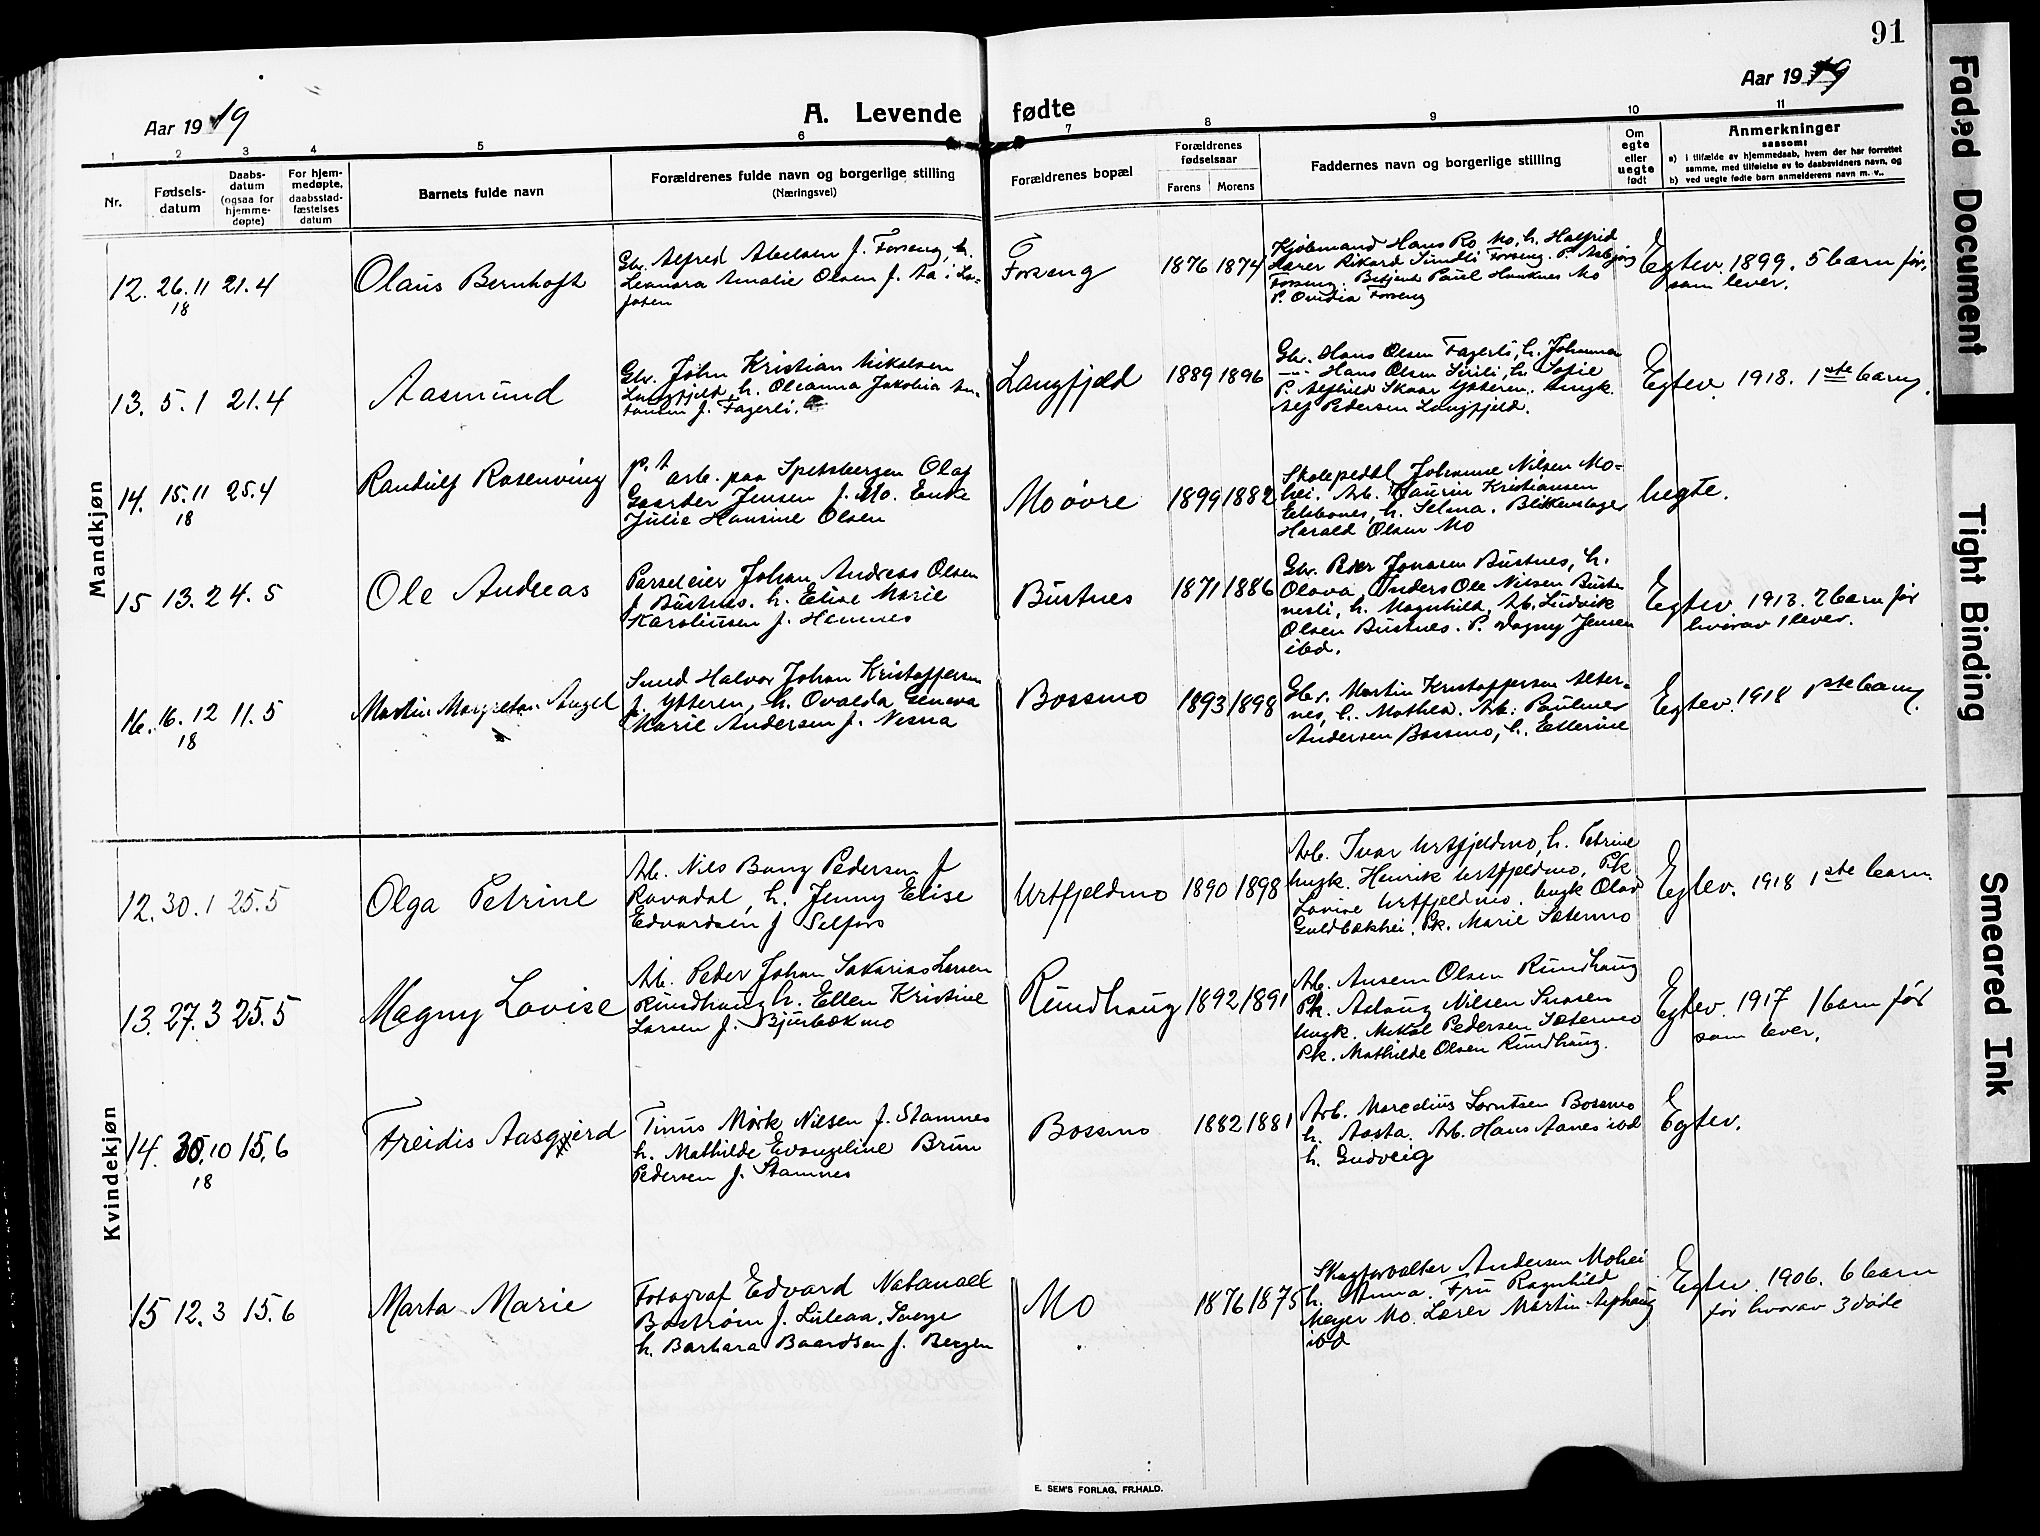 91
Aar 19 19
A. Levende fødte
Aar 19 19
1 2 3 4 5 6 7 8 9 10 11
Nr.
Fødsels-
datum
Daabs-
datum
(ogsaa for
hjemme-
døpte)
For hjem-
medøpte,
daabsstad-
fæstelses
datum
Barnets fulde navn
Forældrenes fulde navn og borgerlige stilling
(Næringsvei)
Forældrenes bopæl
Forældrenes
fødselsaar
Farens Morens
Faddernes navn og borgerlige stilling
Om
egte
eller
uegte
født
Anmerkninger
saasom:
a) i tilfælde av hjemmedaab, hvem der har forrettet
samme, med tilføielse av to daabsvidners navn, og
b) ved uegte fødte barn anmelderens navn m. v..
Mandkjøn
12. 26.11 21.4
18
Olaus Bernhoft
Gbr. Alfred Abelsen f. Forseng, h.
Leonora Amalie Olsen f. Aa i Lo-
foten
Forseng
1876 1874
Kjøbmand Hans Ro Mo, h. Halfrid
Lærer Rikard Sundli Forseng. P. Asbjørg
Forseng. Betjent Paul Hauknes Mo
P. Ovidia Forseng
Egtev. 1899. 5 barn før,
som lever.
13. 5.1 21.4
Aasmund
Gbr. John Kristian Mikalsen
Langfjeld h. Oleanna Jakobia An-
tonsen f. Fagerli.
Langfjeld
1889 1896
Gbr. Hans Olsen Fagerli, h. Johanna
—"— Hans Olsen Sirili, h. Sofie
P. Alfhild Skaar Ytteren. Ungk.
Alf Pedersen Langfjeld.
Egtev. 1918. 1ste barn.
14. 15.11 25.4
18
Randulf Rosenving
p.t. arb. paa Spetsbergen Olaf
Gaarder Jensen f. Mo. Enke
Julie Hansine Olsen
Mo øvre
1899 1882
Johanne Nilsen Mo-
hei. Arb. Laurin Kristiansen
h. Selma. Blikkenslager
Harald Olsen Mo
Uegte.
15 13.2 4.5
Ole Andreas
Parseleier Johan Andreas Olsen
f Bustnes. h. Elise Marie
Karoliusen f. Hemnes
Bustnes
1871 1886
Gbr. Peer Jonasen Bustnes, h.
Olava. Inders. Ole Nilsen Bust-
nesli, h. Magnhild. Arb. Ludvik
Olsen Bustnes. P. Dagny Jensen
ibd.
Egtev. 1913. 2 barn før
hvorav 1 lever.
16. 16.12 11.5
18
Martin Margreton Angel
Smed Halvor Johan Kristoffersen
f. Ytteren, h. Ovalda Geneva
Marie Andersen f. Nesna
Bossmo
1893 1898
Gbr. Martin Kristoffersen Alter-
nes, h. Mathea. Arb. Paulmer
Andersen Bossmo, h. Ellerine
Egtev. 1918 1ste barn.
Kvindekjøn
12. 30.1 25.5
Olga Petrine
Arb. Nils Bang Pedersen f
Ravndal, h. Jenny Elise
Edvardsen f Selfors
Urtfjeldmo
1890 1898
Arb. Ivar Urtfjeldmo, h. Petrine
Ungk. Henrik Urtfjeldmo, Pk
Lovise Urtfjeldmo. Ungk Olav
Guldbækhei, Pk. Marie Sætermo
Egtev. 1918 1ste barn.
13. 27.3 25.5
Magny Lovise
Arb. Peder Johan Sakarias Larsen
Rundhaug h. Ellen Kristine
Larsen f. Bjurbækmo
Rundhaug
1892 1891
Arb. Ansem Olsen Rundhaug
Pk. Aslaug Nilsen
Ungk. Mikal Pedersen Sætermo
Pk. Mathilde Olsen Rundhaug.
Egtev. 1917 1 barn før
som lever.
14. 30.10 15.6
18
Freidis Aasgjerd
Tinus Mørk Nilsen f. Stamnes
h. Mathilde Evangeline Brun
Pedersen f. Stamnes
Bossmo
1882 1881
Arb. Marcelius Lorntsen Bossmo
h. Aasta. Arb. Hans Aanes ibd
h. Gudveig
Egtev.
15 12.3 15.6
Marta Marie
Fotograf Edvard Natanael
Boström f. Luleaa, Sverge
h. Barbara Baardsen f. Bergen
Mo
1876 1875
Skogforvalter Andersen Mohei
h. Anna. Fru Ragnhild
Meyer Mo. Lærer Martin Alfhaug
ibd
Egtev. 1906. 6 barn
før hvorav 3 døde
E. SEM'S FORLAG, FR.HALD.
Faded Document
Tight Binding
Smeared Ink